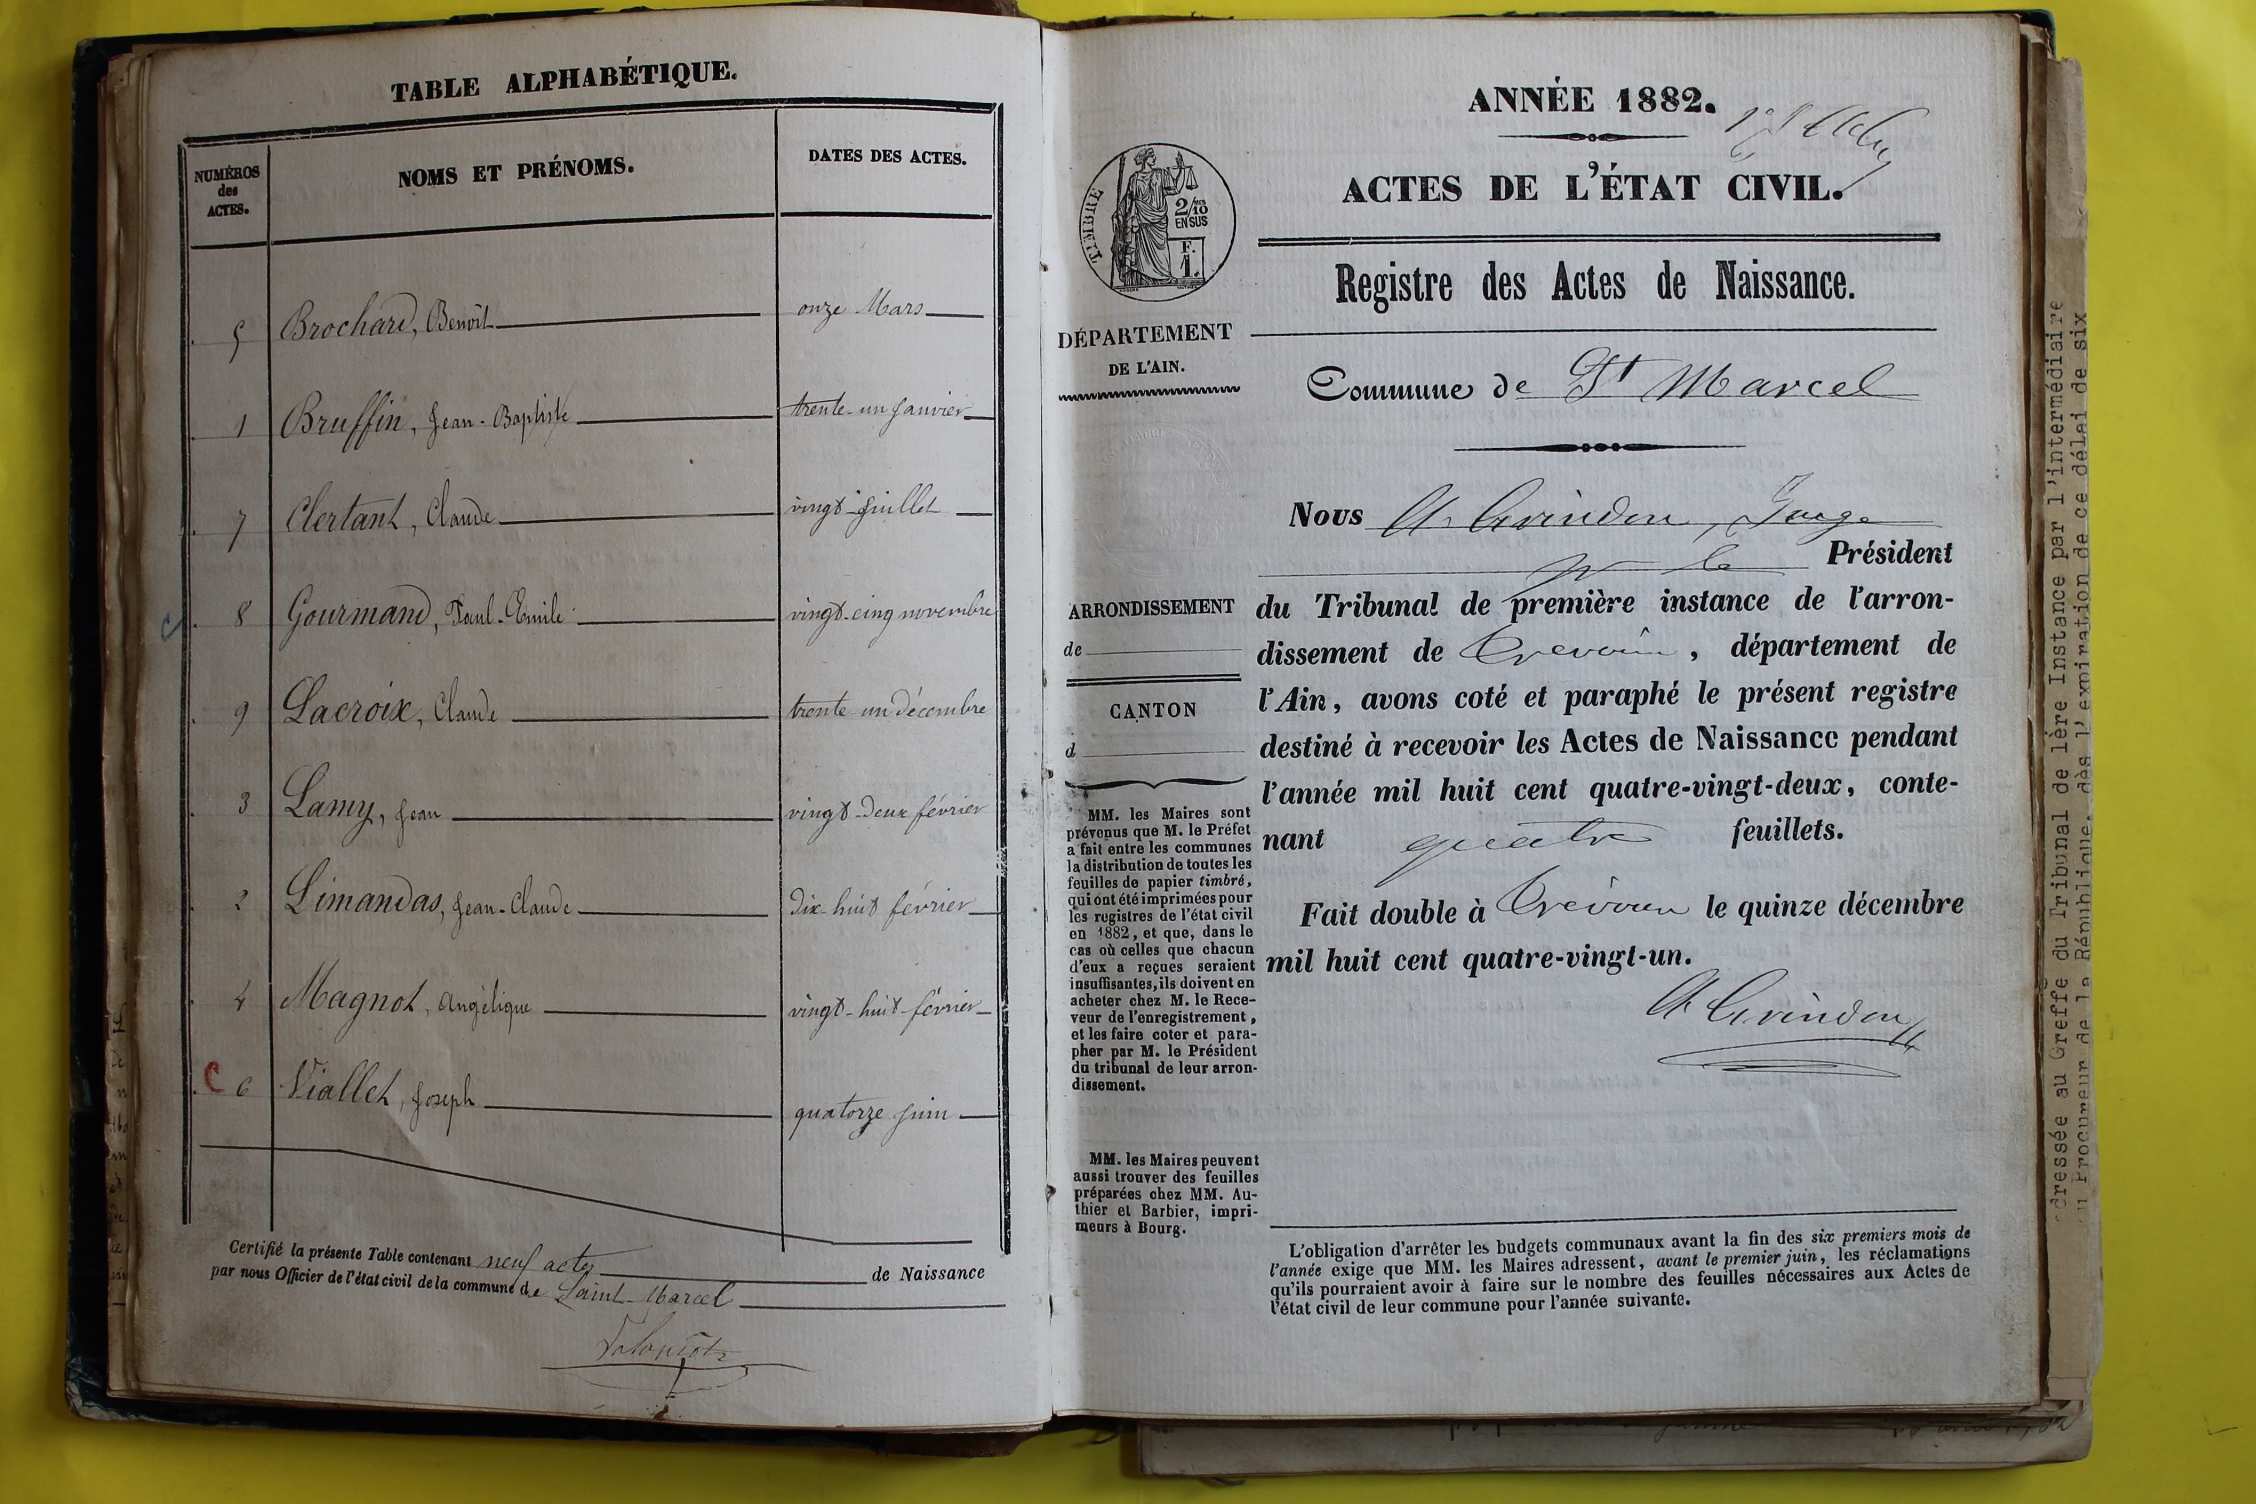 TABLE ALPHABÉTIQUE.
NUMÉROS
des
ACTES.
NOMS ET PRÉNOMS.
DATES DES ACTES.
5 Brochard, Benoît onze Mars
1 Bruffin, Jean-Baptiste trente-un janvier
7 Clertant, Claude vingt-juillet
C 8 Gourmand, Paul-Emile vingt-cinq novembre
9 Lacroix, Claude trente-un décembre
3 Lamy, Jean vingt-deux février
2 Limandas, Jean-Claude dix-huit février
4 Magnot, Angélique vingt-huit-février
C 6 Viallet, Joseph quatorze juin
Certifié la présente Table contenant neuf actes de Naissance
par nous Officier de l'état civil de la commune de Saint-Marcel
ANNÉE 1882.
ACTES DE L'ÉTAT CIVIL.
TIMBRE
2/10
EN SUS
F.
1.
Registre des Actes de Naissance.
DÉPARTEMENT
DE L'AIN.
Commune de St Marcel
Nous Juge
Président
ARRONDISSEMENT
de
CANTON
d
du Tribunal de première instance de l'arron-
dissement de Trévoux, département de
l'Ain, avons coté et paraphé le présent registre
destiné à recevoir les Actes de Naissance pendant
l'année mil huit cent quatre-vingt-deux, conte-
nant quatre feuillets.
Fait double à Trévoux le quinze décembre
mil huit cent quatre-vingt-un.
MM. les Maires sont
prévenus que M. le Préfet
a fait entre les communes
la distribution de toutes les
feuilles de papier timbré,
qui ont été imprimées pour
les registres de l'état civil
en 1882, et que, dans le
cas où celles que chacun
d'eux a reçues seraient
insuffisantes, ils doivent en
acheter chez M. le Rece-
veur de l'enregistrement,
et les faire coter et para-
pher par M. le Président
du tribunal de leur arron-
dissement.
MM. les Maires peuvent
aussi trouver des feuilles
préparées chez MM. Au-
thier et Barbier, impri-
meurs à Bourg.
L'obligation d'arrêter les budgets communaux avant la fin des six premiers mois de
l'année exige que MM. les Maires adressent, avant le premier juin, les réclamations
qu'ils pourraient avoir à faire sur le nombre des feuilles nécessaires aux Actes de
l'état civil de leur commune pour l'année suivante.
dressée au Greffe du Tribunal de 1ère Instance par l'intermédiaire
du Procureur de la République, dès l'expiration de ce délai de six